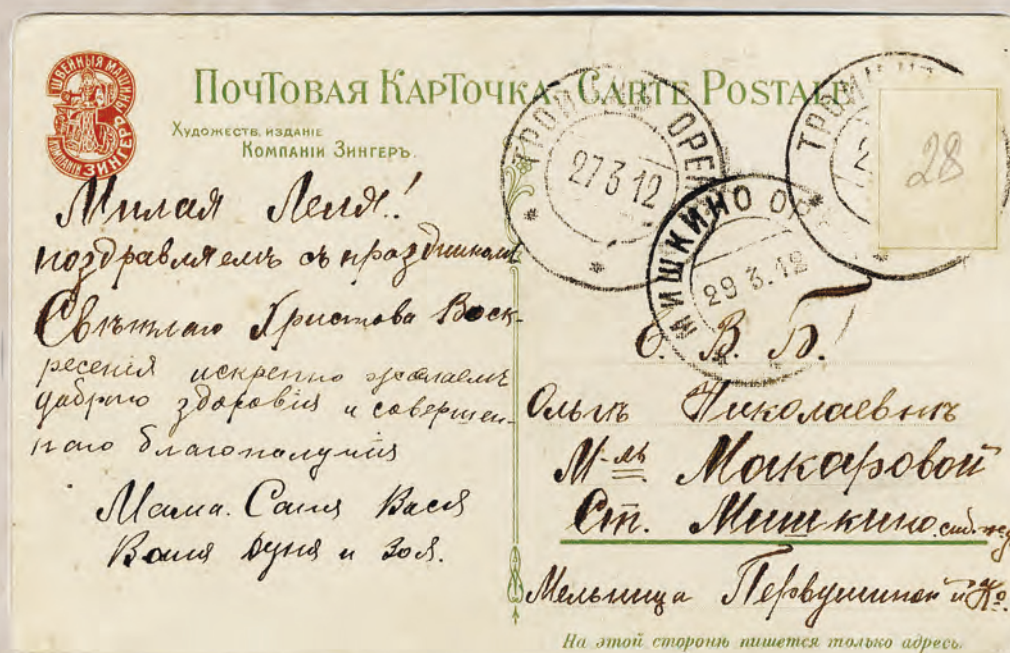 ШВЕЙНЫЯ МАШИНЫ
КОМПАНІИ ЗИНГЕРЪ
ПОЧТОВАЯ КАРТОЧКА. CARTE POSTALE
ХУДОЖЕСТВ. ИЗДАНІЕ
КОМПАНІИ ЗИНГЕРЪ.
27 3 12
28
МИШКИНО ОР
29 3. 12
Милая Леля!
поздравляемъ съ праздникомъ
Свѣтлаго Христова Воск-
ресенія искренно желаемъ
добраго здоровія и совершен-
наго благополучія
Мама. Саня Вася
Ваня Дуня и Зоя.
Е. В. Б.
Ольгѣ Николаевнѣ
М-лѣ Макаровой
Ст. Мишкино
Мельница Первушиной и Ко
На этой сторонѣ пишется только адресъ.